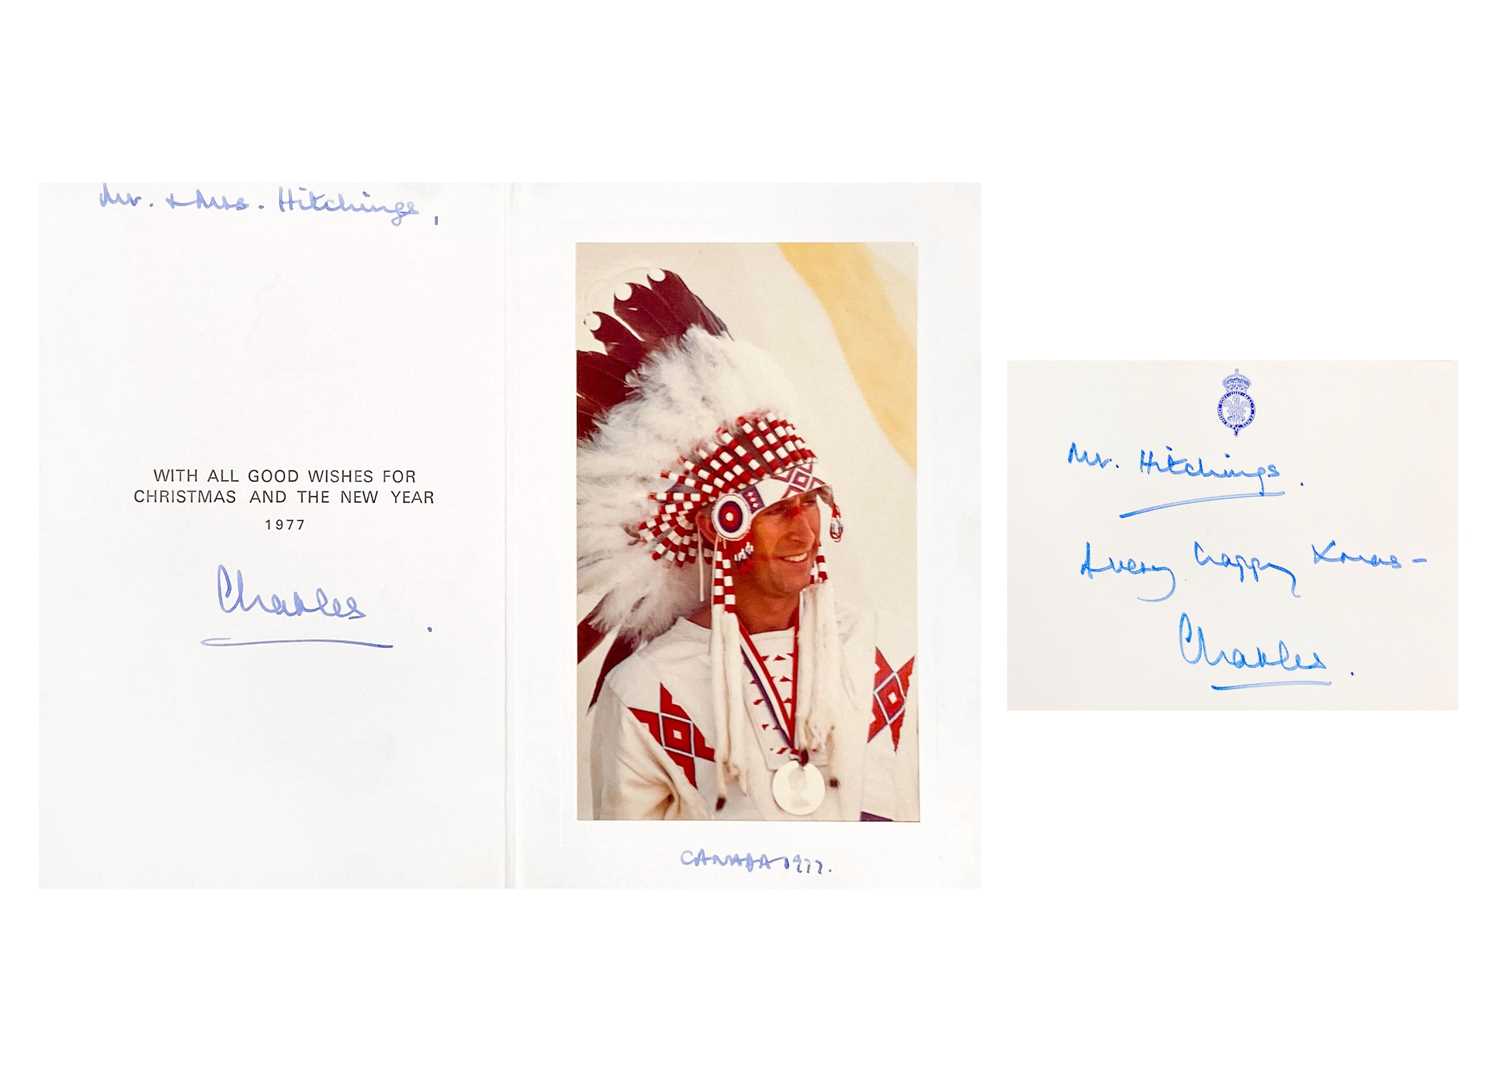 Mr. & Mrs. Hitchings,
WITH ALL GOOD WISHES FOR
CHRISTMAS AND THE NEW YEAR
1977
Charles.
CANADA 1977.
Mr. Hitchings.
A very happy Xmas -
Charles.